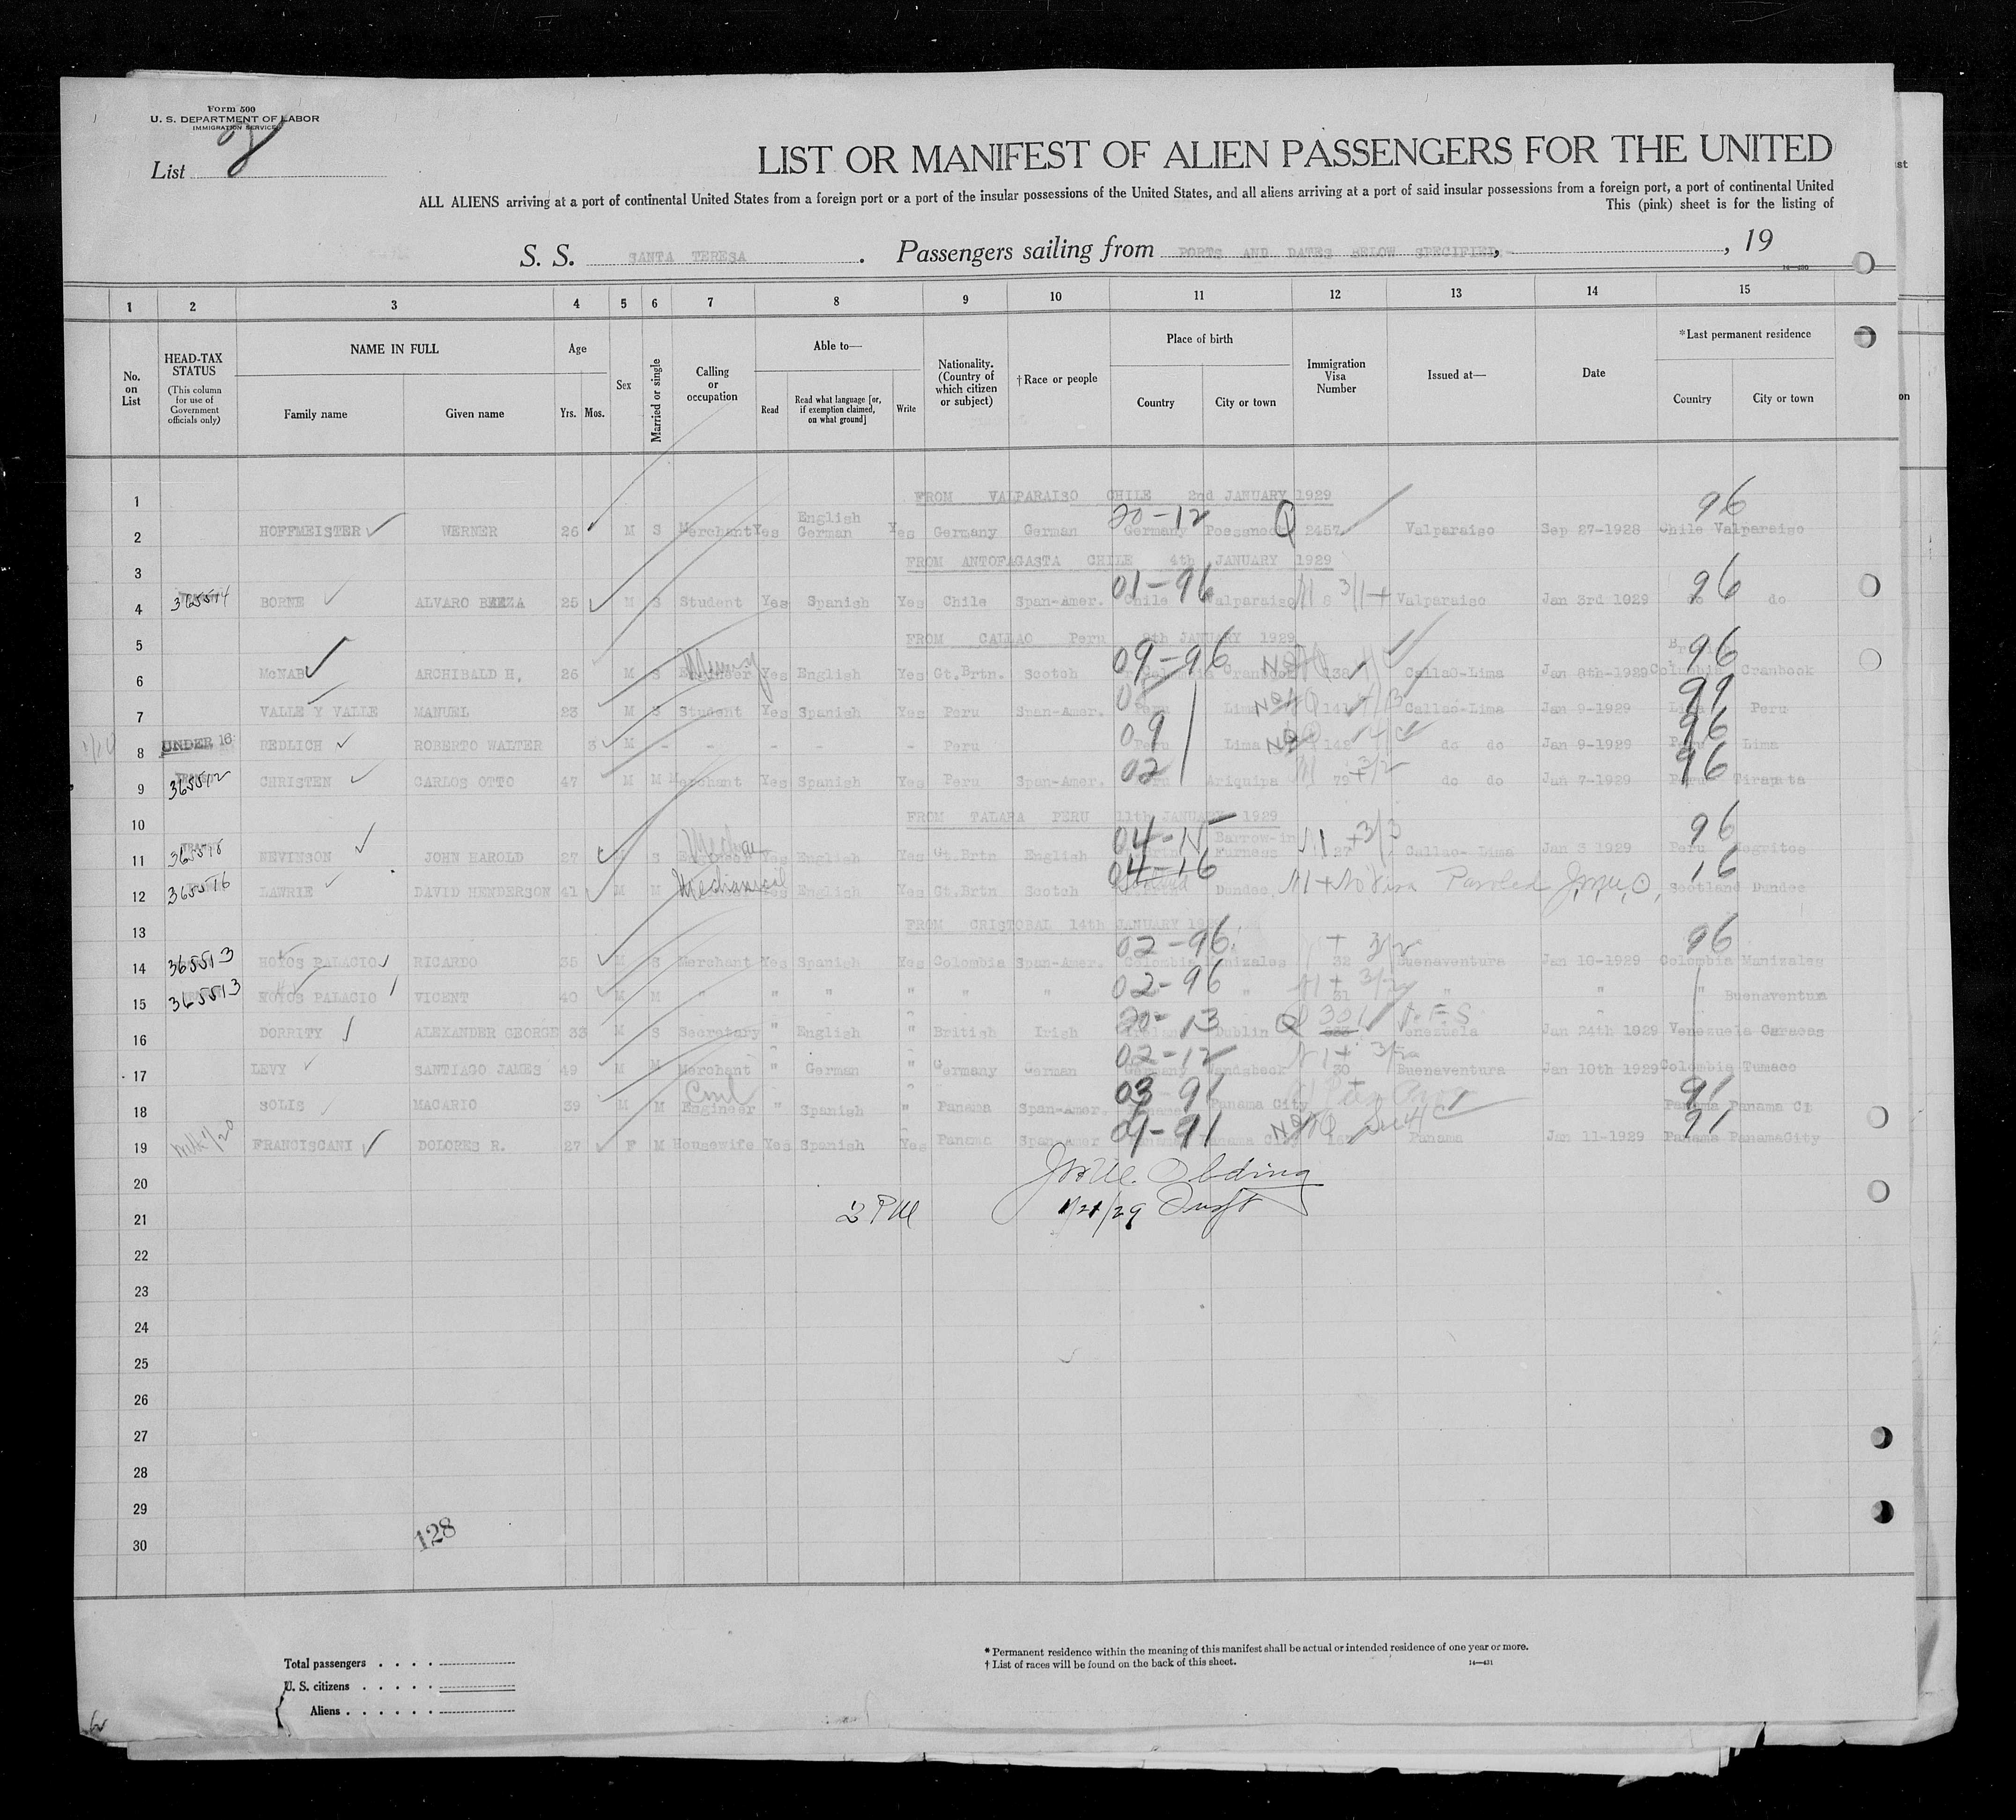 Form 500
U. S. DEPARTMENT OF LABOR
IMMIGRATION SERVICE
List
LIST OR MANIFEST OF ALIEN PASSENGERS FOR THE UNITED
ALL ALIENS arriving at a port of continental United States from a foreign port or a port of the insular possessions of the United States, and all aliens arriving at a port of said insular possessions from a foreign port, a port of continental United
This (pink) sheet is for the listing of
S. S. SANTA TERESA . Passengers sailing from PORTS AND DATES BELOW SPECIFIED , 19
14—430
1 2 3 4 5 6 7 8 9 10 11 12 13 14 15
No. on List
HEAD-TAX STATUS (This column for use of Government officials only)
NAME IN FULL
Family name Given name
Age
Yrs. Mos.
Sex
Married or single
Calling or occupation
Able to—
Read Read what language [or, if exemption claimed, on what ground] Write
Nationality. (Country of which citizen or subject)
†Race or people
Place of birth
Country City or town
Immigration Visa Number
Issued at—
Date
*Last permanent residence
Country City or town
1 FROM VALPARAISO CHILE 2nd JANUARY 1929
20-12 96
2 HOFFMEISTER WERNER 26 M S Merchant Yes English German Yes Germany German Germany Possneck Q 2457 Valparaiso Sep 27-1928 Chile Valparaiso
3 FROM ANTOFAGASTA CHILE 4th JANUARY 1929
01-96 96
4 365514 BORNE ALVARO BAEZA 25 M S Student Yes Spanish Yes Chile Span-Amer. Chile Valparaiso 8 3/1+ Valparaiso Jan 3rd 1929 do do
5 FROM CALLAO Peru 9th JANUARY 1929
09-96 96
6 McNAB ARCHIBALD H. 26 M S Engineer Yes English Yes Gt.Brtn. Scotch Columbia Cranbook 138 Callao-Lima Jan 8th-1929 Columbia Cranbook
7 VALLE Y VALLE MANUEL 23 M S Student Yes Spanish Yes Peru Span-Amer. Peru Lima 141 Callao-Lima Jan 9-1929 Lima Peru
8 UNDER 16 REDLICH ROBERTO WALTER 3 M - - - - - Peru 09 Peru Lima 142 do do Jan 9-1929 Peru Lima 96
9 365512 CHRISTEN CARLOS OTTO 47 M M Merchant Yes Spanish Yes Peru Span-Amer. 02 Peru Ariquipa 79 + 3/2 do do Jan 7-1929 Peru Tirapata 96
10 FROM TALARA PERU 11th JANUARY 1929
04-15 96
11 365518 NEVINSON JOHN HAROLD 27 M S Engineer Yes English Yes Gt.Brtn English Gt.Brtn Barrow-in Furness 27 +3/3 Callao-Lima Jan 3 1929 Peru Negritos
12 365516 LAWRIE DAVID HENDERSON 41 M M Mechanical Yes English Yes Gt.Brtn Scotch 04-16 Dundee No Visa Paroled Scotland Dundee 16
13 FROM CRISTOBAL 14th JANUARY 1929
02-96 96
14 365513 HOYOS PALACIO RICARDO 35 M S Merchant Yes Spanish Yes Colombia Span-Amer. Colombia Manizales 32 + 3/2 Buenaventura Jan 10-1929 Colombia Manizales
02-96
15 365513 HOYOS PALACIO VICENT 40 M M " " " " " " " 31 + 3/2 " " " Buenaventura
16 DORRITY ALEXANDER GEORGE 33 M S Secretary " English " British Irish 20-13 Ireland Dublin Q 321 Venezuela Jan 24th 1929 Venezuela Caracas
17 LEVY SANTIAGO JAMES 49 M M Merchant " German " Germany German 02-12 Germany Wandsbeck 30 + 3/2 Buenaventura Jan 10th 1929 Colombia Tumaco
18 SOLIS MACARIO 39 M M Civil Engineer " Spanish " Panama Span-Amer. 03-91 Panama Panama City 91 Panama Panama Ci
19 FRANCISCANI DOLORES R. 27 F M Housewife Yes Spanish Yes Panama Span-Amer 09-91 Panama Panama City Panama Jan 11-1929 Panama PanamaCity 91
20
21 3 PM 1/21/29
22
23
24
25
26
27
28
29
30
128
Total passengers
U. S. citizens
Aliens
* Permanent residence within the meaning of this manifest shall be actual or intended residence of one year or more.
† List of races will be found on the back of this sheet.
14—431